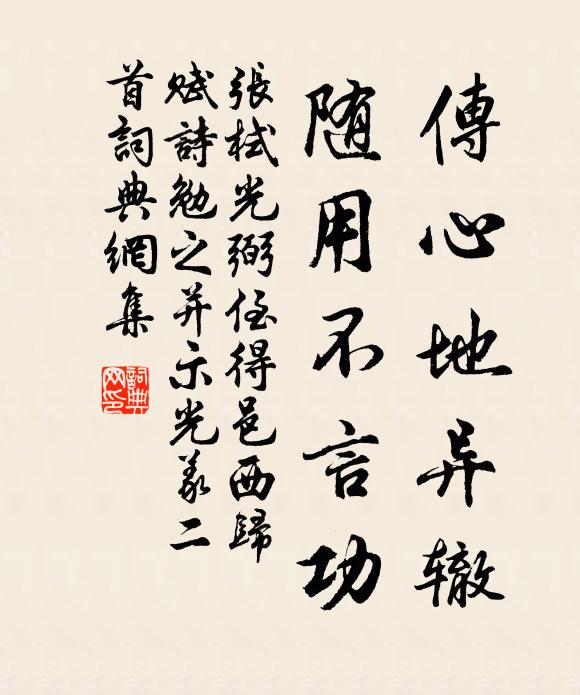 傳心地异辙
随用不言功
張栻光弼侄得邑西歸
赋詩勉之并示光義二
首詞典網集
詞典
网印